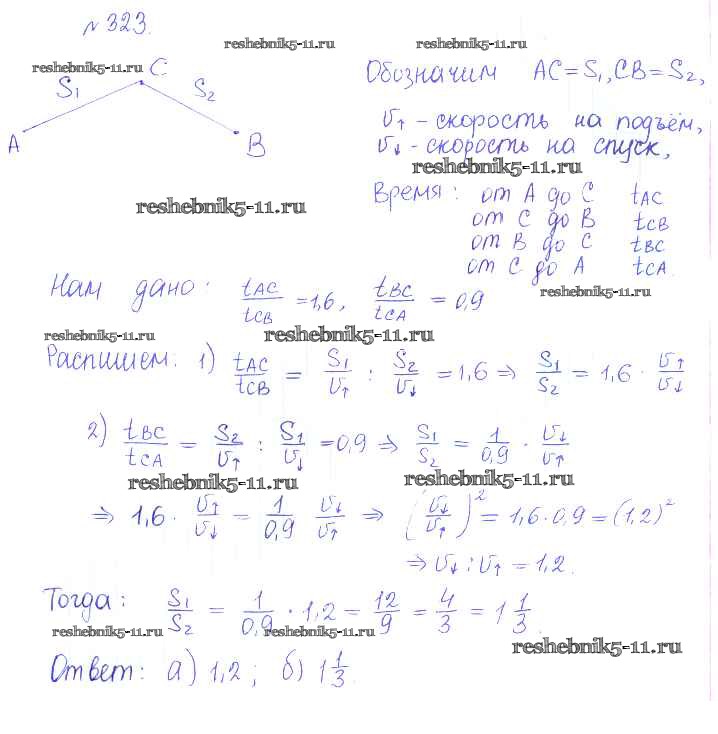 №323.
reshebnik5-11.ru reshebnik5-11.ru
reshebnik5-11.ru
C
S₁ S₂
A B
Обозначим AC=S₁, CB=S₂,
υ↑ - скорость на подъём,
υ↓ - скорость на спуск,
reshebnik5-11.ru
reshebnik5-11.ru
Время: от A до C tAC
от C до B tCB
от B до C tBC
от C до A tCA.
reshebnik5-11.ru
Нам дано: tAC/tCB = 1,6, tBC/tCA = 0,9
reshebnik5-11.ru reshebnik5-11.ru
Распишем: 1) tAC/tCB = S₁/υ↑ : S₂/υ↓ = 1,6 ⇒ S₁/S₂ = 1,6 · υ↑/υ↓
2) tBC/tCA = S₂/υ↑ : S₁/υ↓ = 0,9 ⇒ S₁/S₂ = 1/0,9 · υ↓/υ↑
reshebnik5-11.ru reshebnik5-11.ru
⇒ 1,6 · υ↑/υ↓ = 1/0,9 υ↓/υ↑ ⇒ (υ↓/υ↑)² = 1,6·0,9 = (1,2)²
⇒ υ↓ : υ↑ = 1,2.
Тогда: S₁/S₂ = 1/0,9 · 1,2 = 12/9 = 4/3 = 1 1/3.
reshebnik5-11.ru reshebnik5-11.ru
reshebnik5-11.ru
Ответ: а) 1,2; б) 1 1/3.